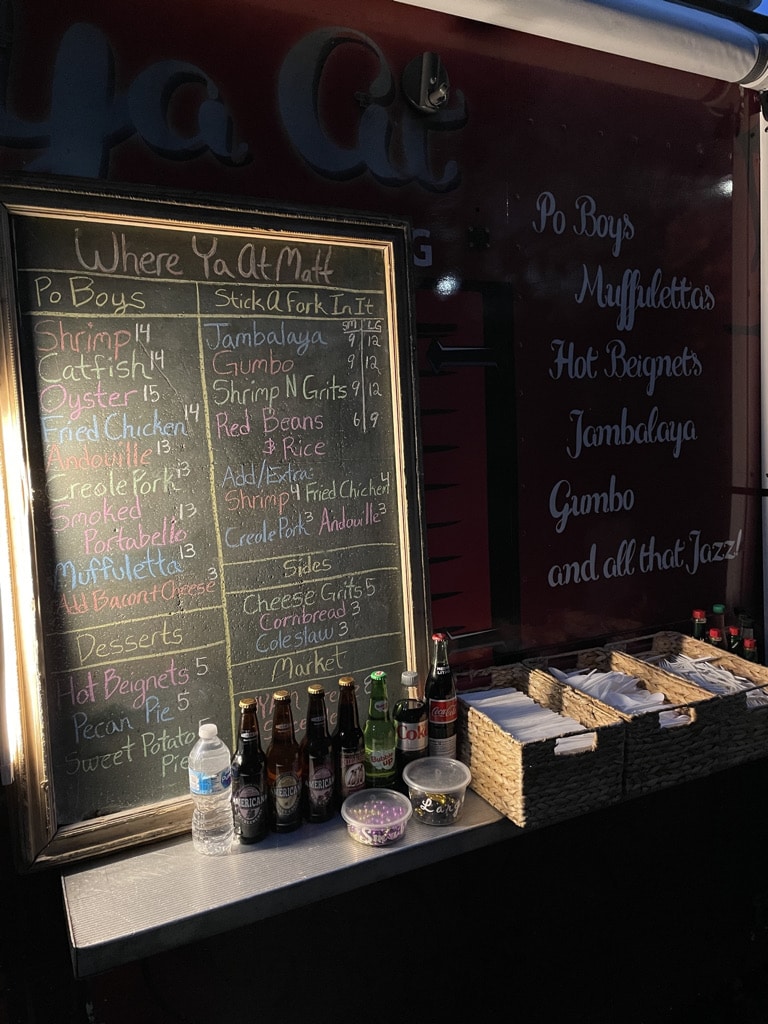 Ya At
G
Where Ya At Matt
Po Boys
Shrimp 14
Catfish 14
Oyster 15
Fried Chicken 14
Andouille 13
Creole Pork 13
Smoked
Portabello 13
Muffuletta 13
Add Bacon + Cheese 3
Desserts
Hot Beignets 5
Pecan Pie 5
Sweet Potato
Pie
Stick A Fork In It
SM LG
Jambalaya 9 12
Gumbo 9 12
Shrimp N Grits 9 12
Red Beans 6 9
& Rice
Add/Extra:
Shrimp 4 Fried Chicken 4
Creole Pork 3 Andouille 3
Sides
Cheese Grits 5
Cornbread 3
Coleslaw 3
Market
Po Boys
Muffulettas
Hot Beignets
Jambalaya
Gumbo
and all that Jazz!
AMERICANA
AMERICANA
AMERICANA
Bubble Up
Coke
Coca-Cola